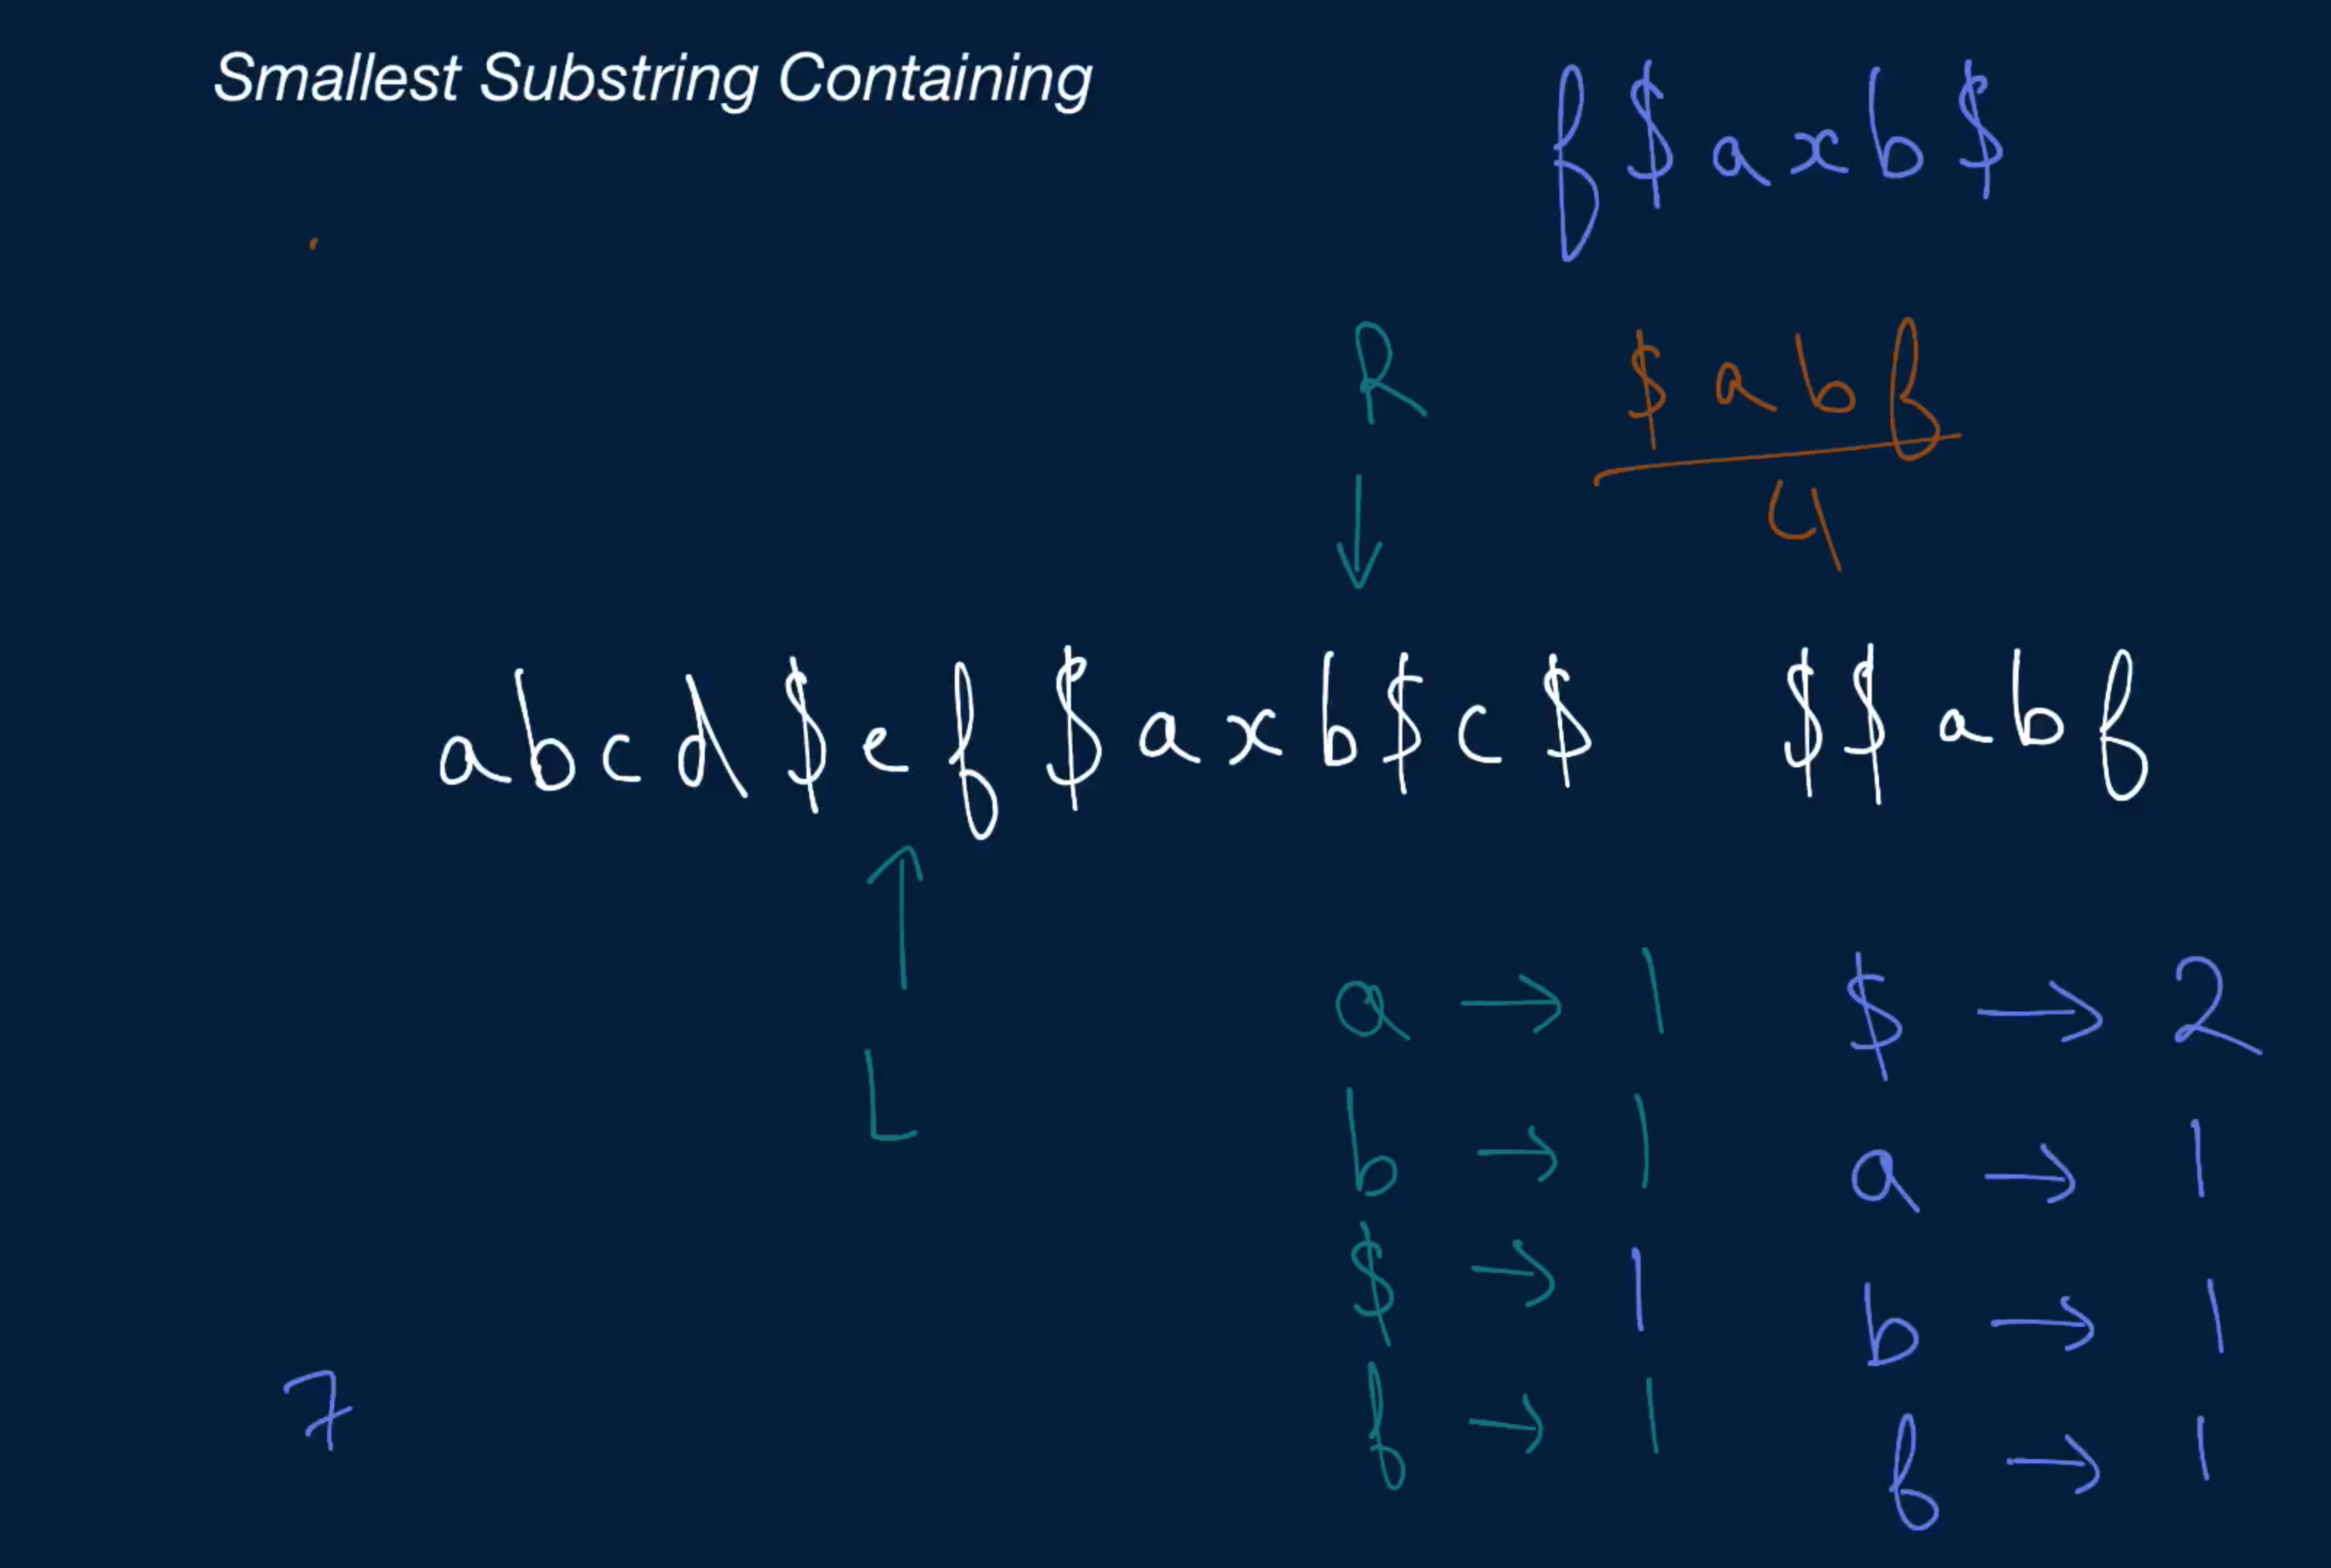 Smallest Substring Containing
f$axb$
R
$abf
4
abcd$ef$axb$c$ $$abf
L
a → 1 $ → 2
b → 1 a → 1
$ → 1 b → 1
f → 1 f → 1
7